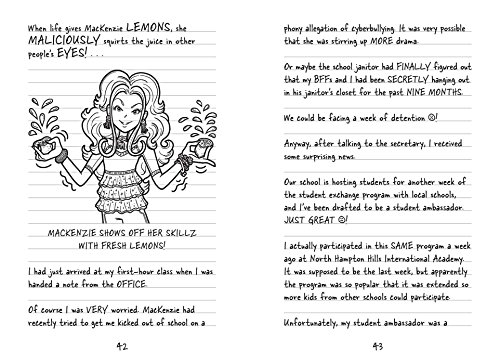 When life gives MacKenzie LEMONS, she
MALICIOUSLY squirts the juice in other
people's EYES! . . .
MACKENZIE SHOWS OFF HER SKILLZ
WITH FRESH LEMONS!
I had just arrived at my first-hour class when I was
handed a note from the OFFICE.
Of course I was VERY worried. MacKenzie had
recently tried to get me kicked out of school on a
42
phony allegation of cyberbullying. It was very possible
that she was stirring up MORE drama.
Or maybe the school janitor had FINALLY figured out
that my BFFs and I had been SECRETLY hanging out
in his janitor's closet for the past NINE MONTHS.
We could be facing a week of detention ☹!
Anyway, after talking to the secretary, I received
some surprising news.
Our school is hosting students for another week of
the student exchange program with local schools,
and I've been drafted to be a student ambassador.
JUST GREAT ☹!
I actually participated in this SAME program a week
ago at North Hampton Hills International Academy.
It was supposed to be the last week, but apparently
the program was so popular that it was extended so
more kids from other schools could participate.
Unfortunately, my student ambassador was a
43